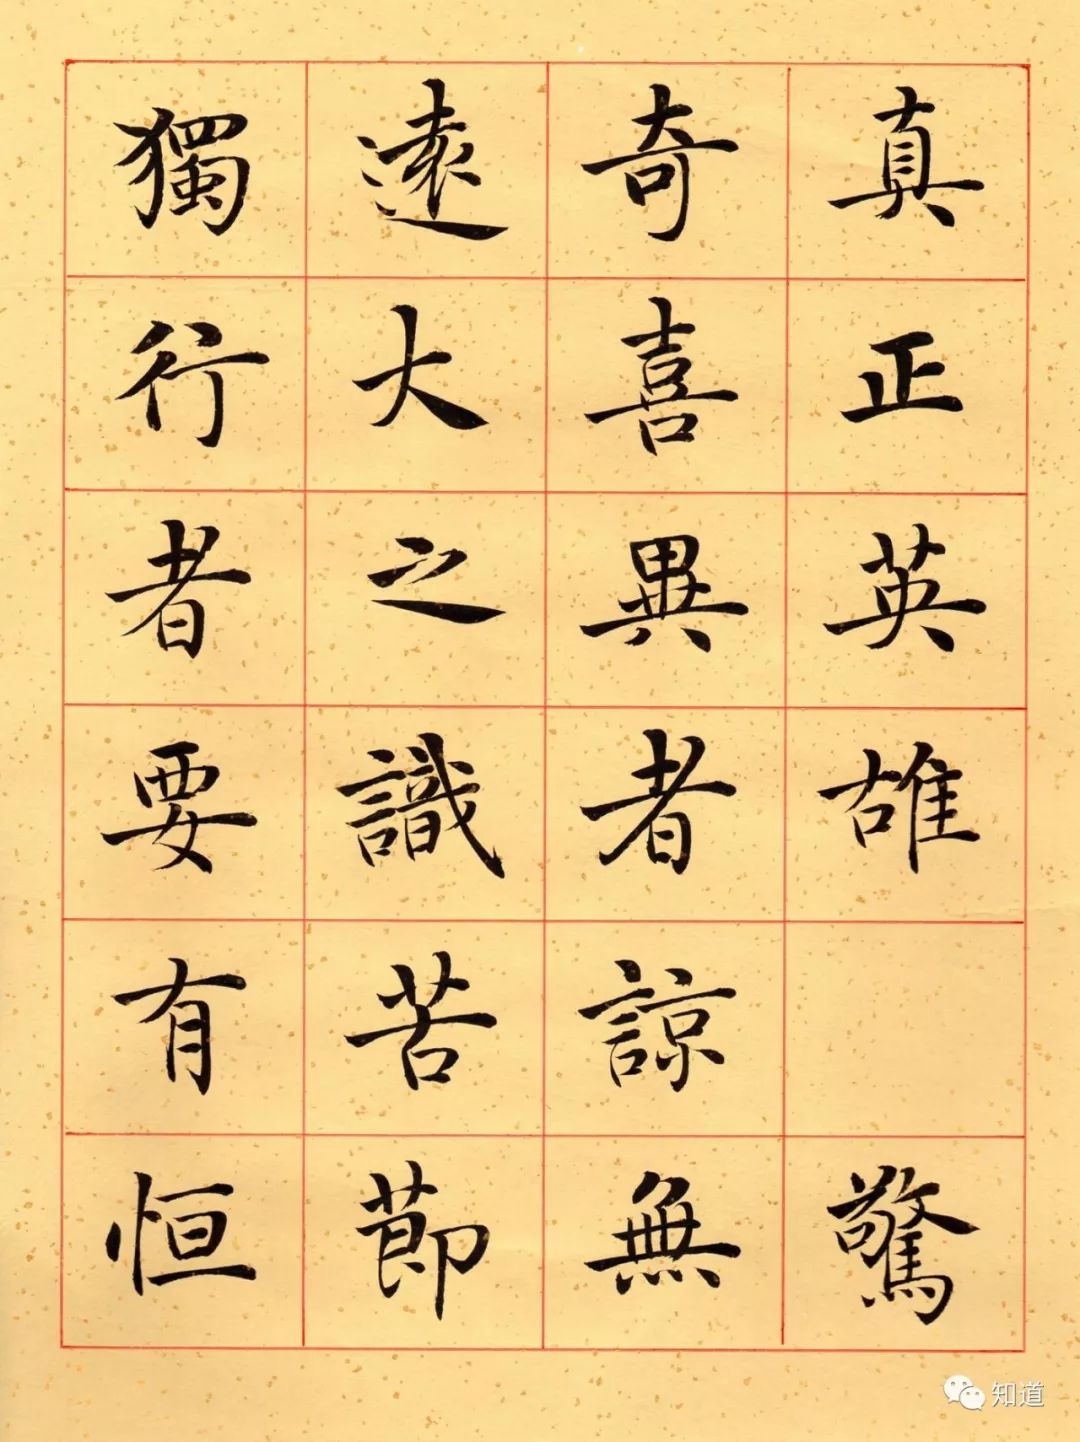 真正英雄 驚
奇喜異者諒無
遠大之識苦節
獨行者要有恒
知道